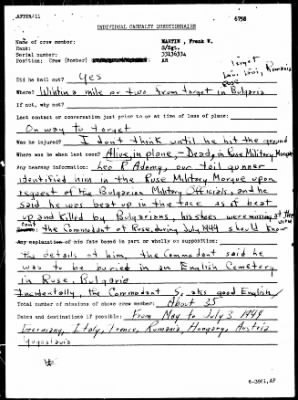 AFPPA-11
6758
INDIVIDUAL CASUALTY QUESTIONNAIRE
Name of crew member: MARTIN, Frank W.
Rank: S/Sgt.
Serial number:
Position: Crew (Bomber) AG
Target
Rumania
Did he bail out? Yes
Where? Within a mile or two from target in Bulgaria
If not, why not?
Last contact or conversation just prior to or at time of loss of plane:
On way to target
Was he injured? I don't think until he hit the ground
Where was he when last seen? Alive, in plane - Dead, in Ruse Military Morgue
Any hearsay information: Leo R Adams, our tail gunner
identified him in the Ruse Military Morgue upon
request of the Bulgarian Military Officials, and he
said he was beat up in the face as if beat
up and killed by Bulgarians, his shoes were missing
the Commodant of Ruse, during July 1944 should know
Any explanation of his fate based in part or wholly on supposition:
the details of him, the Commodant said he
was to be buried in an English Cemetery
in Ruse, Bulgaria
Incidentally, the Commodant speaks good English
Total number of missions of above crew member: About 35
Dates and destinations if possible: From May to July 3 1944
Germany, Italy, France, Rumania, Hungary, Austria
Yugoslavia
6-3861, AF